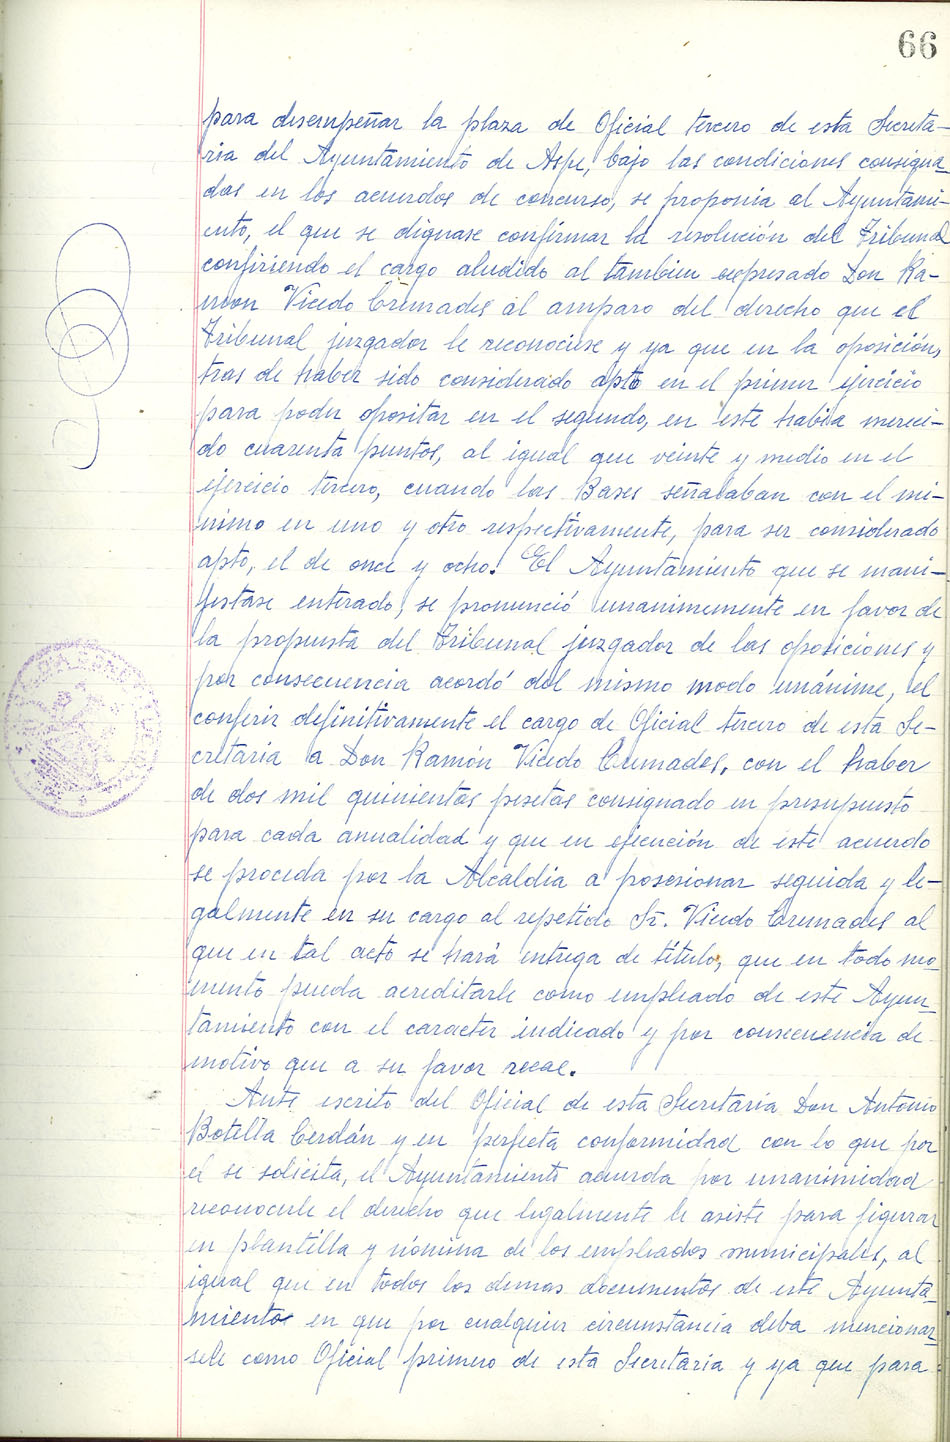 66
para desempeñar la plaza de Oficial tercero de esta Secreta-
ria del Ayuntamiento de Aspe, bajo las condiciones consigna-
das en los acuerdos de concurso, se proponia al Ayuntami-
ento, el que se dignase confirmar la resolución del Tribunal
confiriendo el cargo aludido al tambien expresado Don Ra-
mon Vicedo Cremades al amparo del derecho que el
Tribunal juzgador le reconociese y ya que en la oposición,
tras de haber sido considerado apto en el primer ejercicio
para poder opositar en el segundo, en este habia mereci-
do cuarenta puntos, al igual que veinte y medio en el
ejercicio tercero, cuando las Bases señalaban con el mi-
nimo en uno y otro respectivamente, para ser considerado
apto, el de once y ocho. El Ayuntamiento que se mani-
festase enterado, se pronunció unanimemente en favor de
la propuesta del Tribunal juzgador de las oposiciones y
por consecuencia acordó del mismo modo unánime, el
conferir definitivamente el cargo de Oficial tercero de esta Se-
cretaria a Don Ramón Vicedo Cremades, con el haber
de dos mil quinientas pesetas consignado en presupuesto
para cada anualidad y que en ejecución de este acuerdo
se proceda por la Alcaldia a posesionar seguida y le-
galmente en su cargo al repetido Sr. Vicedo Cremades al
que en tal acto se hará entrega de título, que en todo mo-
mento pueda acreditarle como empleado de este Ayun-
tamiento con el caracter indicado y por consecuencia de
motivo que a su favor recae.
Ante escrito del Oficial de esta Secretaria Don Antonio
Botella Cerdán y en perfecta conformidad con lo que por
él se solicita, el Ayuntamiento acuerda por unanimidad
reconocerle el derecho que legalmente le asiste para figurar
en plantilla y nómina de los empleados municipales, al
igual que en todos los demas documentos de este Ayunta-
miento en que por cualquier circunstancia deba mencionar-
sele como Oficial primero de esta Secretaria y ya que para